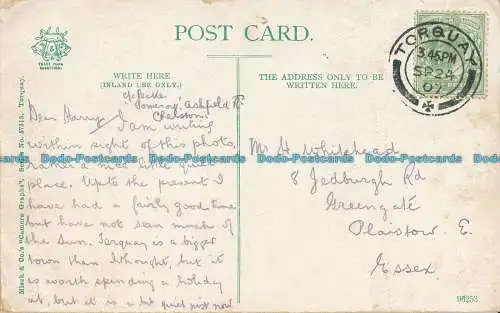 POST CARD.
TRADE MARK
TORQUAY
3.45PM
SP 24
07
WRITE HERE
(INLAND USE ONLY.)
THE ADDRESS ONLY TO BE
WRITTEN HERE.
Pomeroy, Ashfield R.
Chelston
Dear Harry, I am writing
within sight of this photo,
rather a nice little
place. Up to the present I
have had a fairly good time
but have not seen much of
the sun. Torquay is a bigger
town than I thought, but it
is worth spending a holiday
at, but it is a bit quiet just now
Mr H. Whitehead
8 Jedburgh Rd
Greengate
Plaistow. E.
Essex.
Misch & Co.'s "Camera Graphs". Series No. Torquay.
96253
Dodo-Postcards Dodo-Postcards Dodo-Postcards Dodo-Postcards